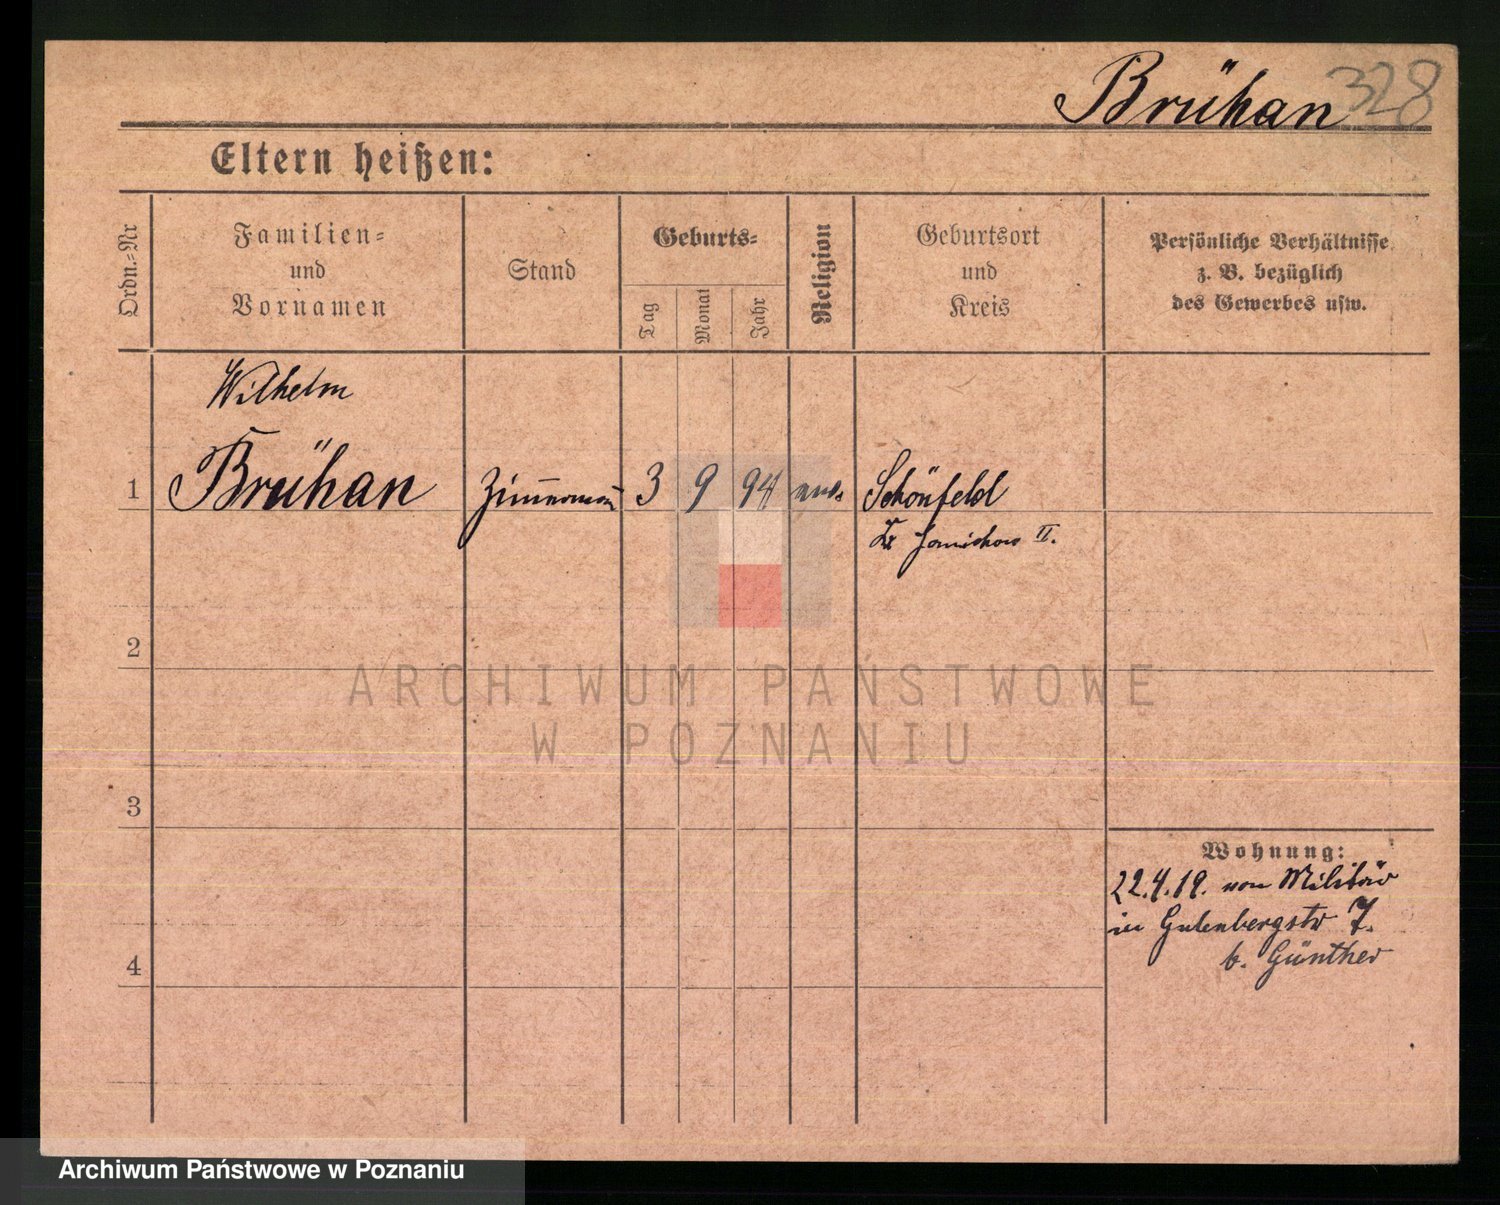 Brühan 328
Eltern heißen:
Ordn.-Nr
Familien-
und
Vornamen
Stand
Geburts-
Tag
Monat
Jahr
Religion
Geburtsort
und
Kreis
Persönliche Verhältnisse
z. B. bezüglich
des Gewerbes usw.
Wilhelm
1 Brühan Zimmermann 3 9 94 Schönfeld
II.
2
3
4
Wohnung:
22.4.19. von Militär
in Gutenbergstr 7.
b. Günther
ARCHIWUM PAŃSTWOWE
W POZNANIU
Archiwum Państwowe w Poznaniu